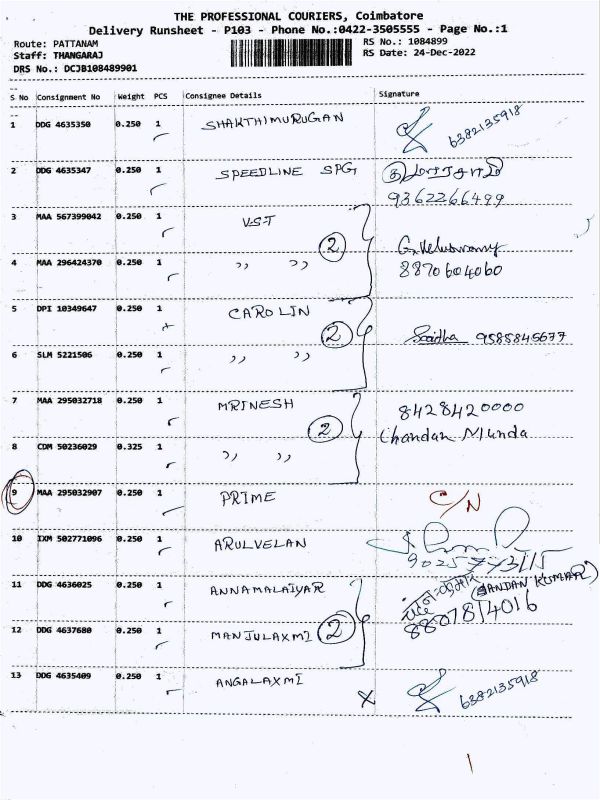 THE PROFESSIONAL COURIERS, Coimbatore
Delivery Runsheet - P103 - Phone No.:0422-3505555 - Page No.:1
Route: PATTANAM RS No.: 1084899
Staff: THANGARAJ RS Date: 24-Dec-2022
DRS No.: DCJB108489901
S No Consignment No Weight PCS Consignee Details Signature
1 DDG 4635350 0.250 1 SHAKTHIMURUGAN 6382135918
2 DDG 4635347 0.250 1 SPEEDLINE SPG
9362266499
3 MAA 567399042 0.250 1 V.S.T
2 G. Veluswamy
4 MAA 296424370 0.250 1 ,, ,, 8870604060
5 DPI 10349647 0.250 1 CAROLIN
2 9585845677
6 SLM 5221506 0.250 1 ,, ,,
7 MAA 295032718 0.250 1 MRINESH 8428420000
2 Chandan Munda
8 CDM 50236029 0.325 1 ,, ,,
9 MAA 295032907 0.250 1 PRIME C/N
10 IXM 502771096 0.250 1 ARULVELAN
11 DDG 4636025 0.250 1 ANNAMALAIYAR
2 8807814016
12 DDG 4637680 0.250 1 MANJULAXMI
13 DDG 4635409 0.250 1 ANGALAXMI X 6382135918